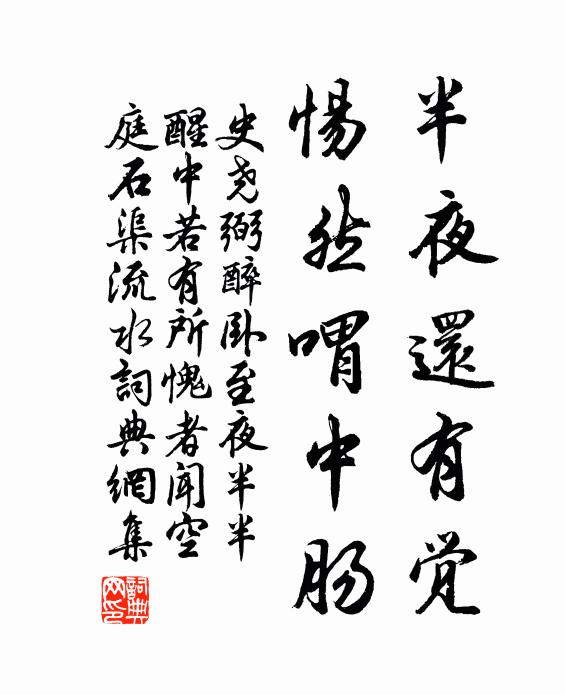 半夜還有覚
惕然喟中肠
史尧弼醉卧至夜半半
醒中若有所愧者闻空
庭石渠流水詞典網集
詞典
网印